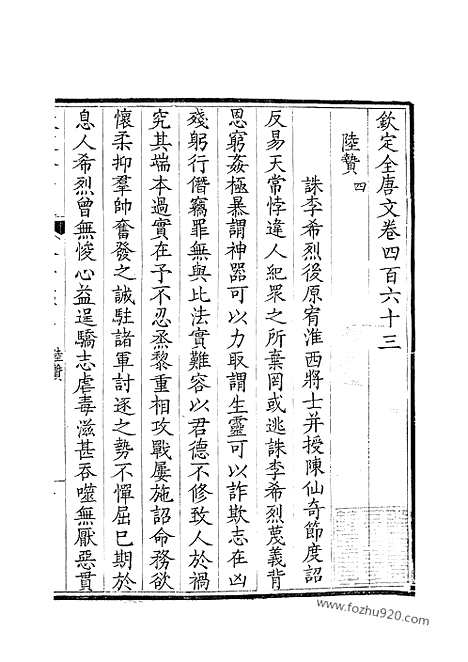 欽定全唐文卷四百六十三
陸贄 四
誅李希烈後原宥淮西將士并授陳仙奇節度詔
反易天常悖違人紀眾之所棄罔或逃誅李希烈蔑義背
恩窮姦極暴謂神器可以力取謂生靈可以詐欺志在凶
殘躬行僭竊罪無與比法實難容以君德不修致人於禍
究其端本過實在予不忍烝黎重相攻戰屢施詔命務欲
懷柔抑羣帥奮發之誠駐諸軍討逐之勢不憚屈已期於
息人希烈曾無悛心益逞驕志虐毒滋甚吞噬無厭惡貫
陸贄
www.fozhu920.com